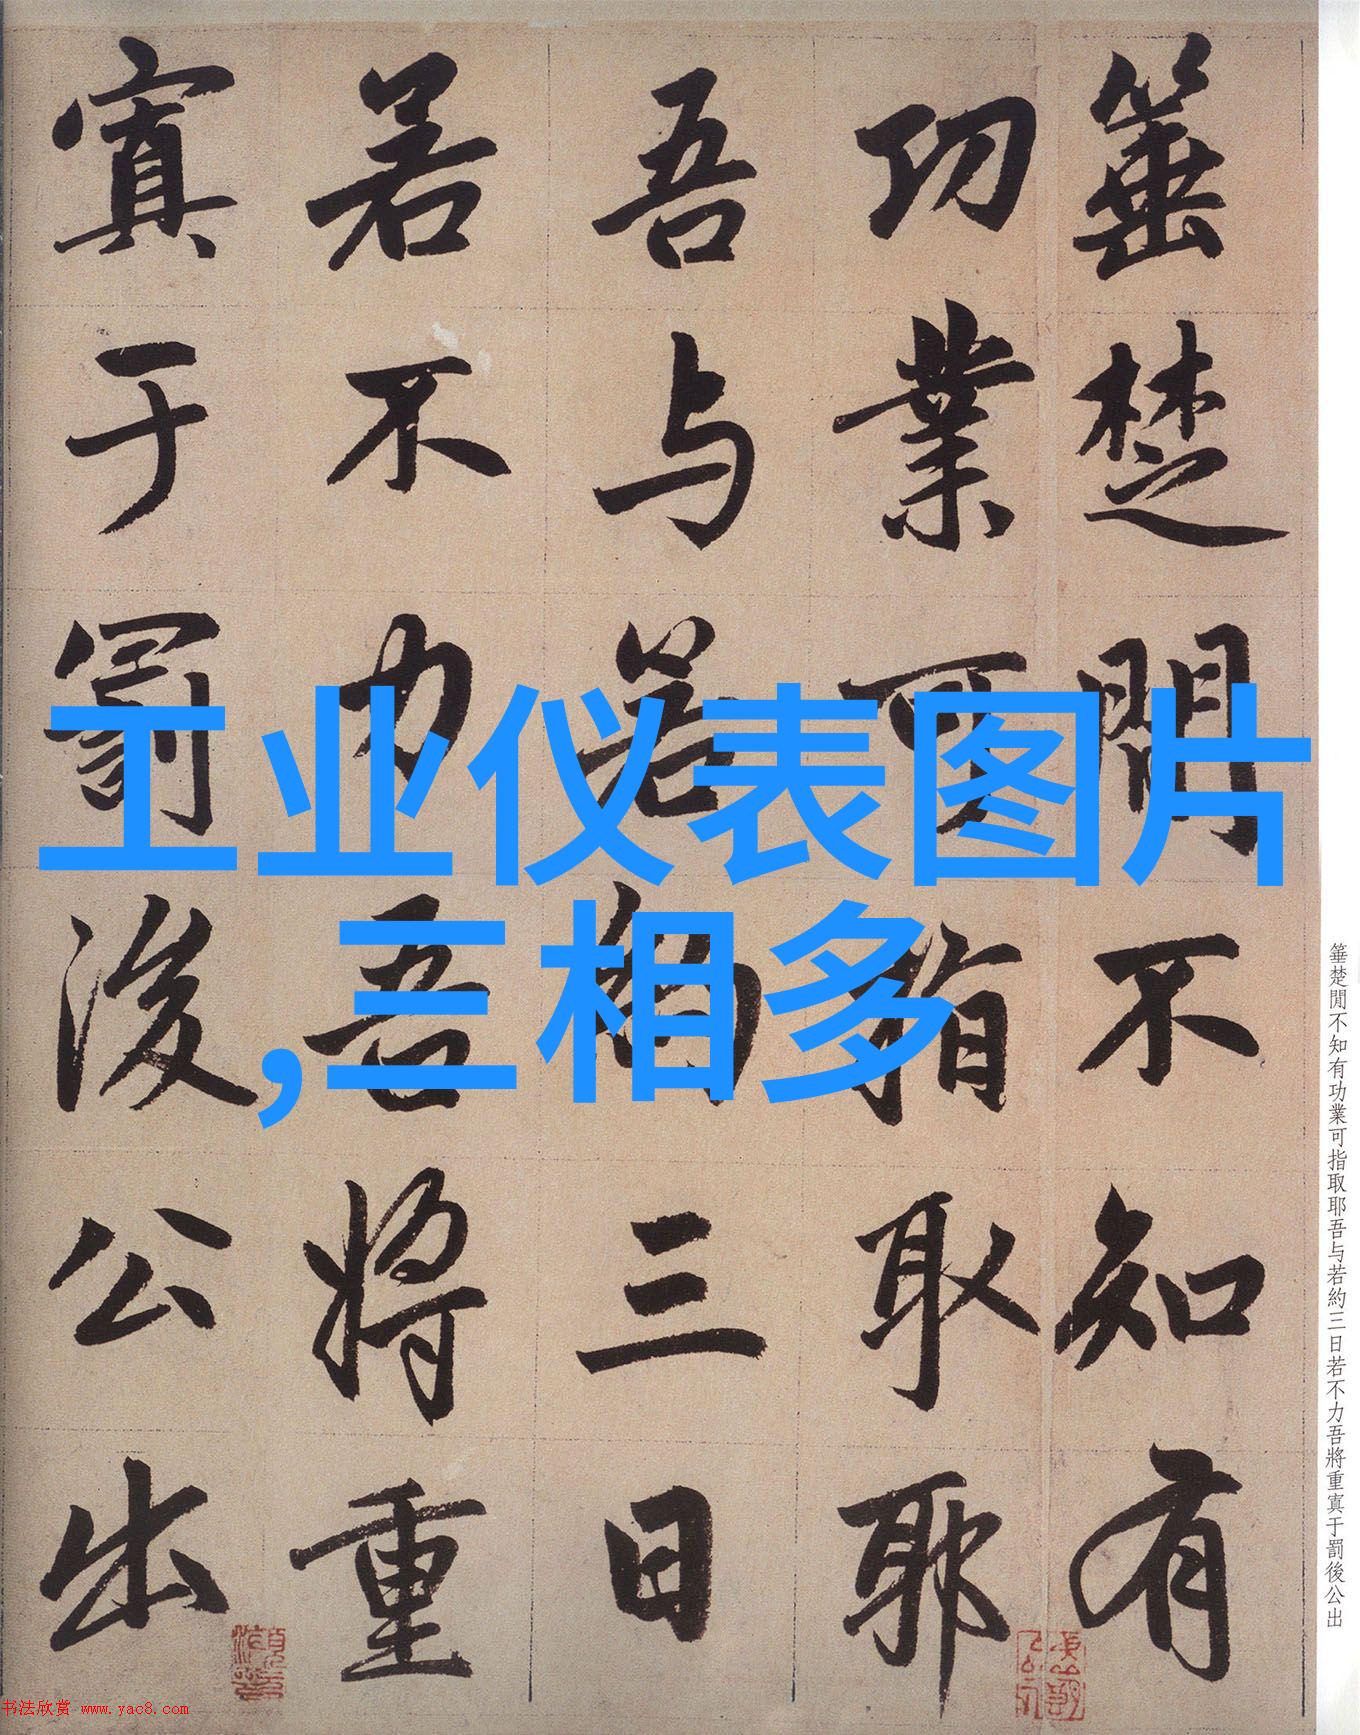 箠楚閒不知有
功業可指取耶
吾与若約三日
若不力吾將重
寘于罰後公出
工业仪表图片
,三相多
箠楚閒不知有功業可指取耶吾与若約三日若不力吾將重寘于罰後公出
书法欣赏 www.yac8.com